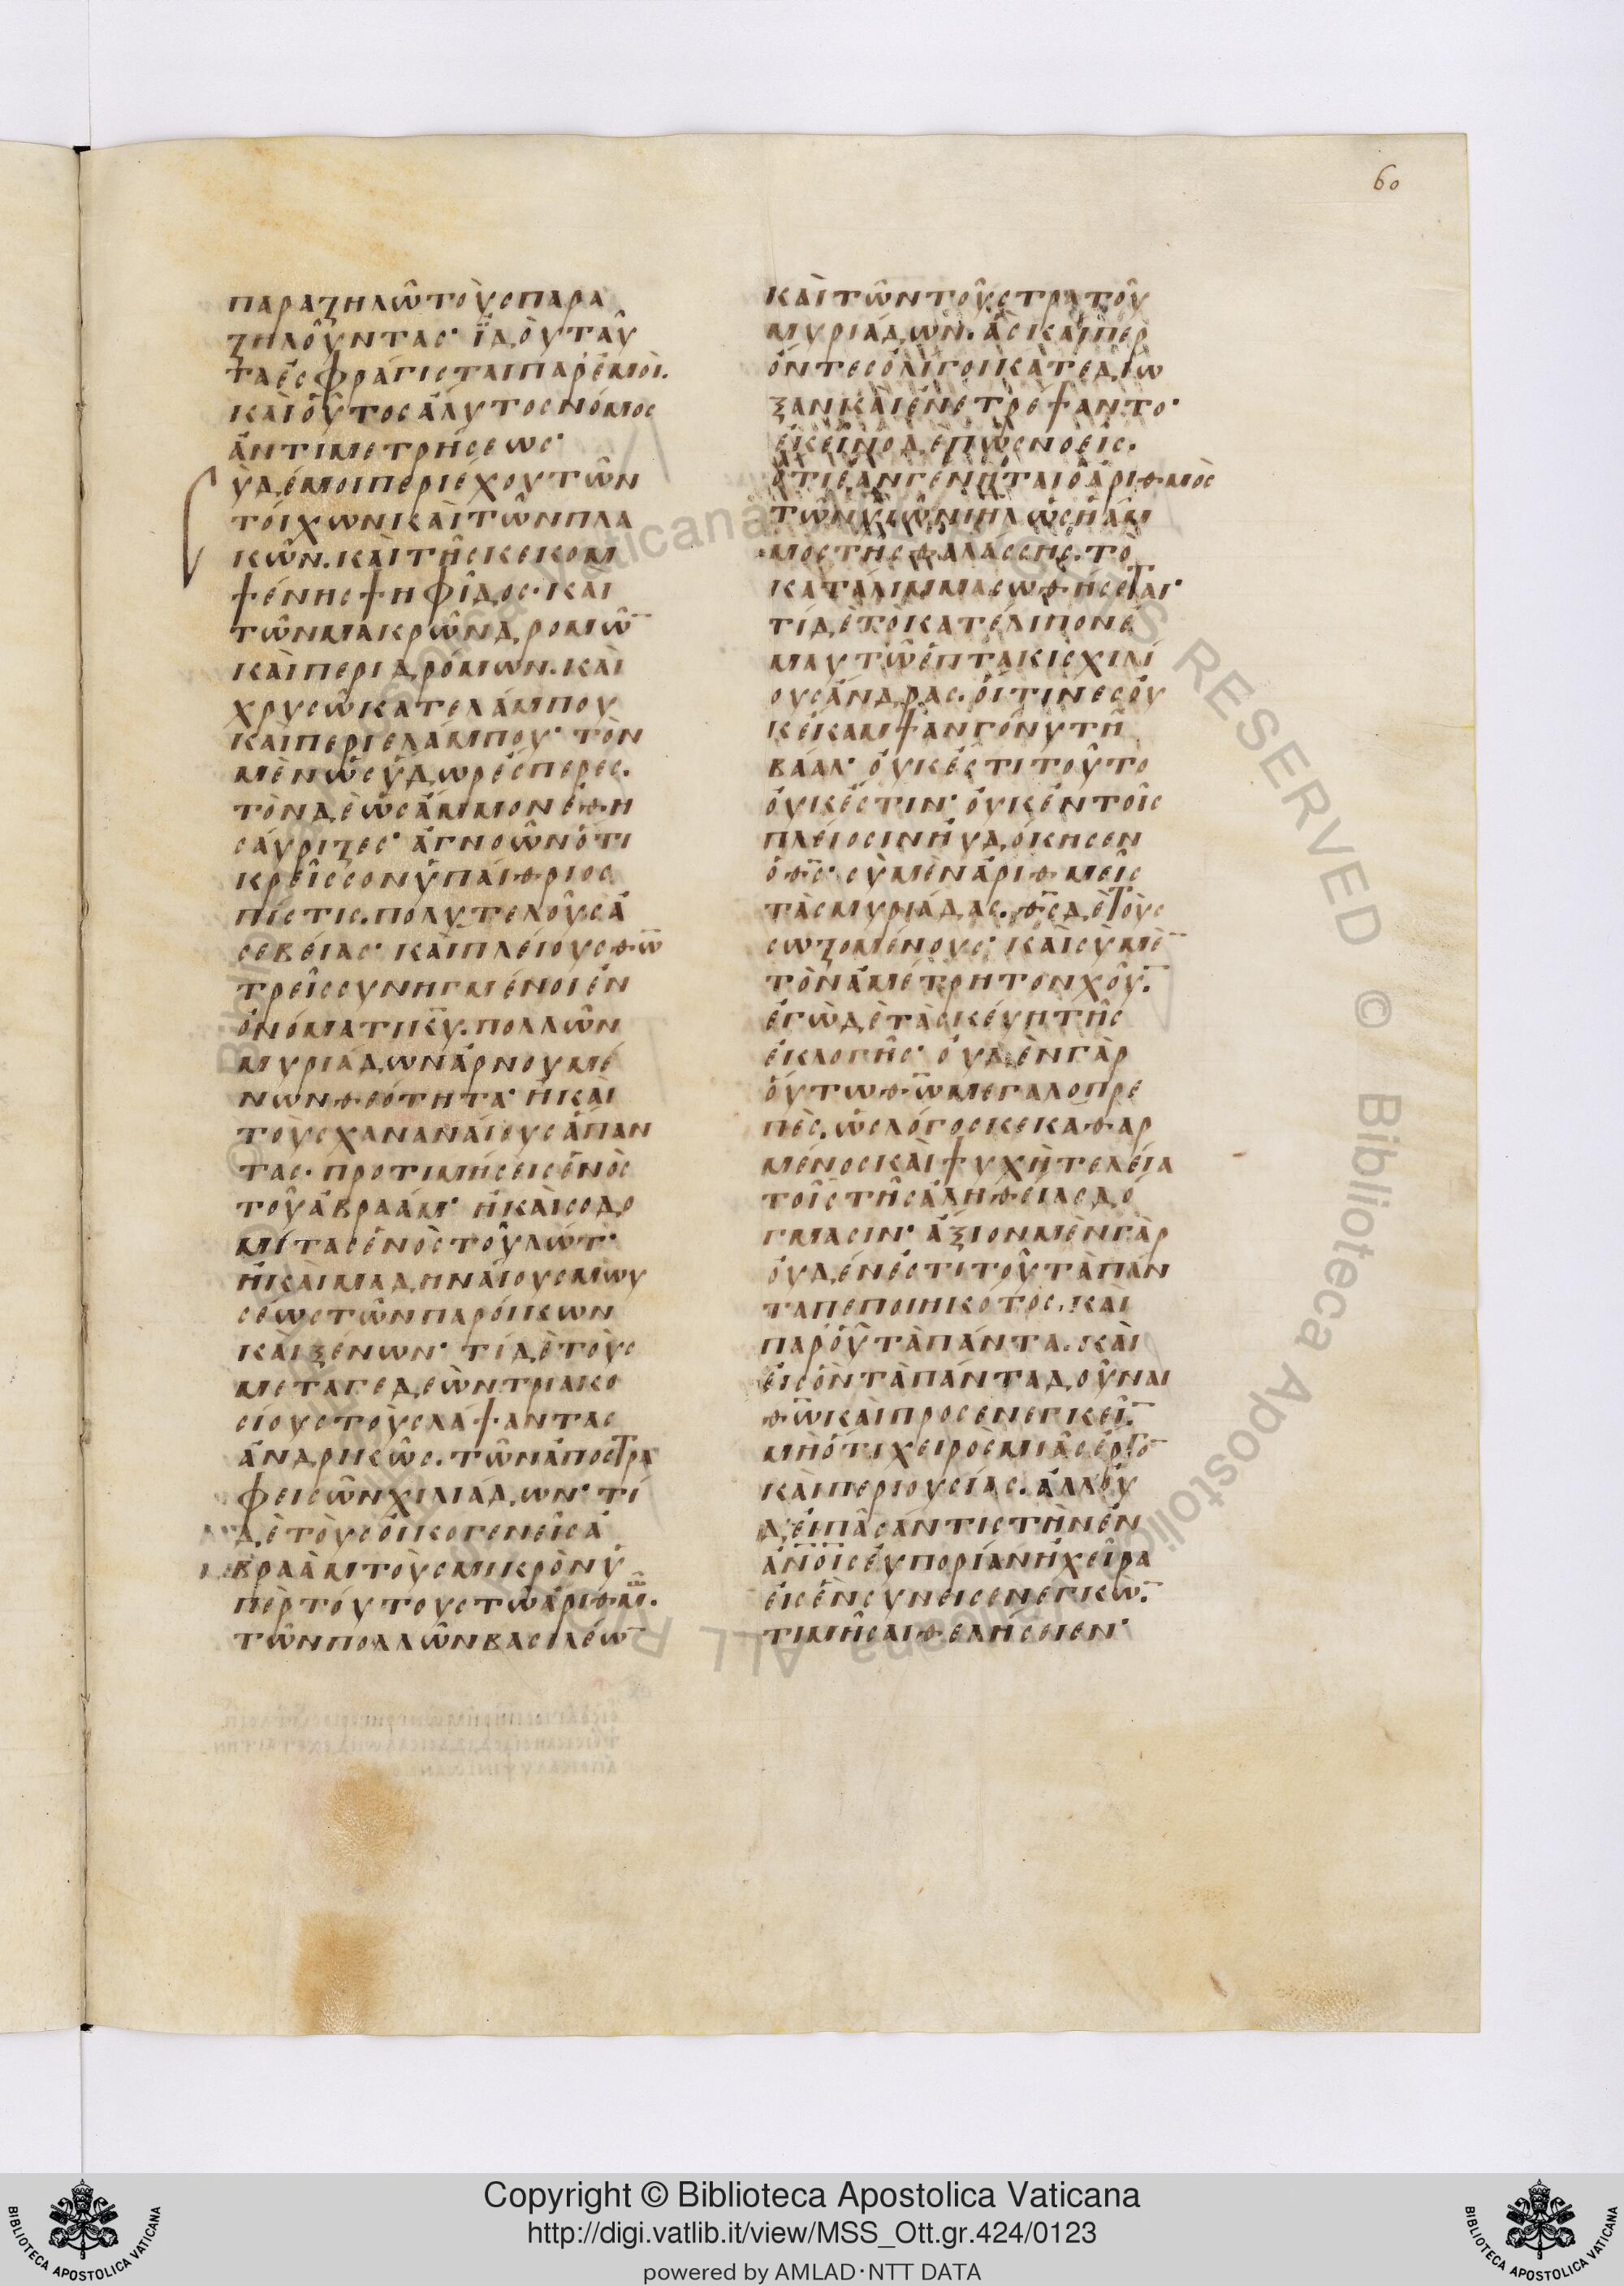 60
παραζηλῶ τοὺς παρα
ζηλοῦντας· ϊδοὺ ταῦ
τα ἐσφράγισται παρ' ἐμοὶ.
καὶ οὗτος ἄλυτος νόμος
ἀντιμετρήσεως·
ὺ δέ μοι περιέχου τῶν
τοίχων καὶ τῶν πλα
κῶν. καὶ τῆς κεκομ
ψένης ψηφῖδος· και
τῶν μακρῶν δρομῶ̅
καὶ περιδρόμων. καὶ
χρυσῶ κατελάμπου
καὶ περιελάμπου· τὸν
μὲν ὡς ὕδωρ ἔσπερες.
τὸν δὲ ὡς ἄμμον ἐθη
σαύριζες· ἀγνοῶν ὅτι
κρεῖσσον ὑπαίθριος
πίστις. πολυτελοῦς ἀ
σεβείας· καὶ πλείους θ̅ω̅
τρεῖς συνηγμένοι ἐν
ὀνόματι κ̅υ̅. πολλῶν
μυριάδων ἀρνουμέ
νων θεότητα· ἢ καὶ
τοὺς χαναναίους ἅπαν
τας· προτιμήσεις ἑνὸς
τοῦ ἀβραάμ· ἢ καὶ σοδο
μίτας ἑνὸς τοῦ λώτ·
ἢ καὶ μαδηναίους μωυ
σέως τῶν παροίκων
καὶ ξένων· τί δὲ τοὺς
μετὰ γεδεὼν τριακο
σίους τοὺς λάψαντας
ἀνδρικῶς. τῶν ἀποστρα
φεισῶν χιλιάδων· τί
δὲ τοὺς οἰκογενεῖς ἀ
βραὰμ τοὺς μικρὸν ὑ
πὲρ τούτους τῶ ἀριθμ.
τῶν πολλῶν βασιλέω̅
καὶ τῶν τοῦ στρατοῦ
μυριάδων. ἃς καίπερ
ὄντες ὀλίγοι κατεδίω
ξαν καὶ ἐνετρέψαντο·
ἐκεῖνο δὲ πῶς νοεῖς.
ὅτι ἐὰν γένηται ὁ ἀριθμὸς
τῶν υἱῶν ιηλ ὡς ἡ ἄμ
μος τῆς θαλάσσης. τὸ
κατάλιμμα σωθήσεται·
τί δὲ τὸ κατέλιπον ἐ
μαυτῶ ἑπτακισχιλί
ους ἄνδρας. οἵτινες οὐ
κ ἔκαμψαν γόνυ τῆ
βάαλ· οὐκ ἔστι τοῦτο
οὐκ ἔστιν· οὐκ ἐν τοῖς
πλείοσιν ηὐδόκησεν
ὁ θ̅ς̅· σὺ μὲν ἀριθμεῖς
τὰς μυριάδας. θ̅ς̅ δὲ τοὺς
σωζομένους· καὶ σὺ μὲ̅
τὸν ἀμέτρητον χοῦ̅.
ἐγὼ δὲ τὰ σκεύη τῆς
ἐκλογῆς· οὐδὲν γὰρ
οὕτω θ̅ω̅ μεγαλοπρε
πὲς. ὡς λόγος κεκαθαρ
μένος καὶ ψυχὴ τελεία
τοῖς τῆς ἀληθείας δό
γμασιν· ἄξιον μὲν γὰρ
οὐδέν ἐστι τοῦ τὰ πάν
τα πεποιηκότος. και
παρ' οὗ τὰ πάντα. καὶ
εἰς ὃν τὰ πάντα δοῦναι
θ̅ω̅ καὶ προσενεγκεῖ̅.
μὴ ὅτι χειρὸς μιᾶς ἔργο̅
καὶ περιουσίας. ἀλλ' οὐ
δ' εἰ πᾶσάν τις τὴν ἐν
α̅ν̅ο̅ι̅ς̅ εὐπορίαν ἢ χεῖρα
εἰς ἓν συνεισενεγκὼ̅.
τιμῆσαι θελήσειεν·
Copyright © Biblioteca Apostolica Vaticana
http://digi.vatlib.it/view/MSS_Ott.gr.424/0123
powered by AMLAD·NTT DATA